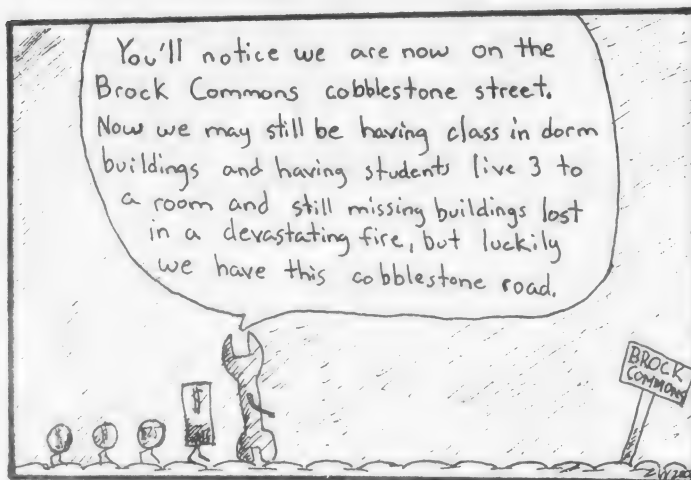 You'll notice we are now on the
Brock Commons cobblestone street.
Now we may still be having class in dorm
buildings and having students live 3 to
a room and still missing buildings lost
in a devastating fire, but luckily
we have this cobblestone road.
$
BROCK
COMMONS